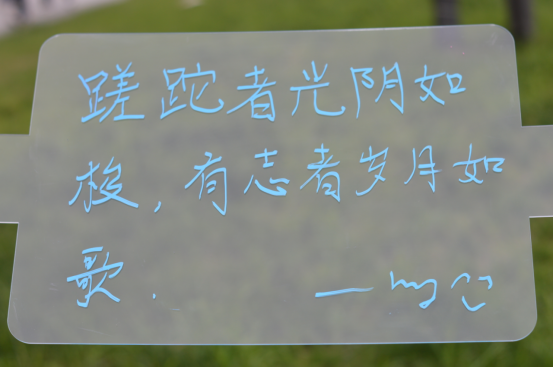 蹉跎者光阴如
梭,有志者岁月如
歌.